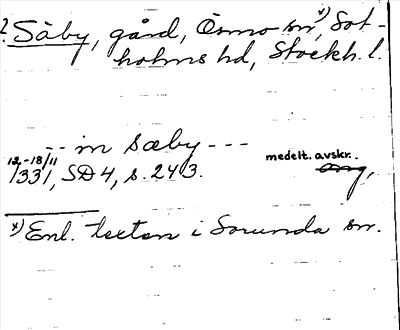 2. Säby, gård, Ösmo sn, x) Sot-
holms hd, Stockh. l.
-- in sæby ---
12-18/11 medelt. avskr.
1331, SD 4, s. 243. orig.
x) Enl. texten i Sorunda sn.